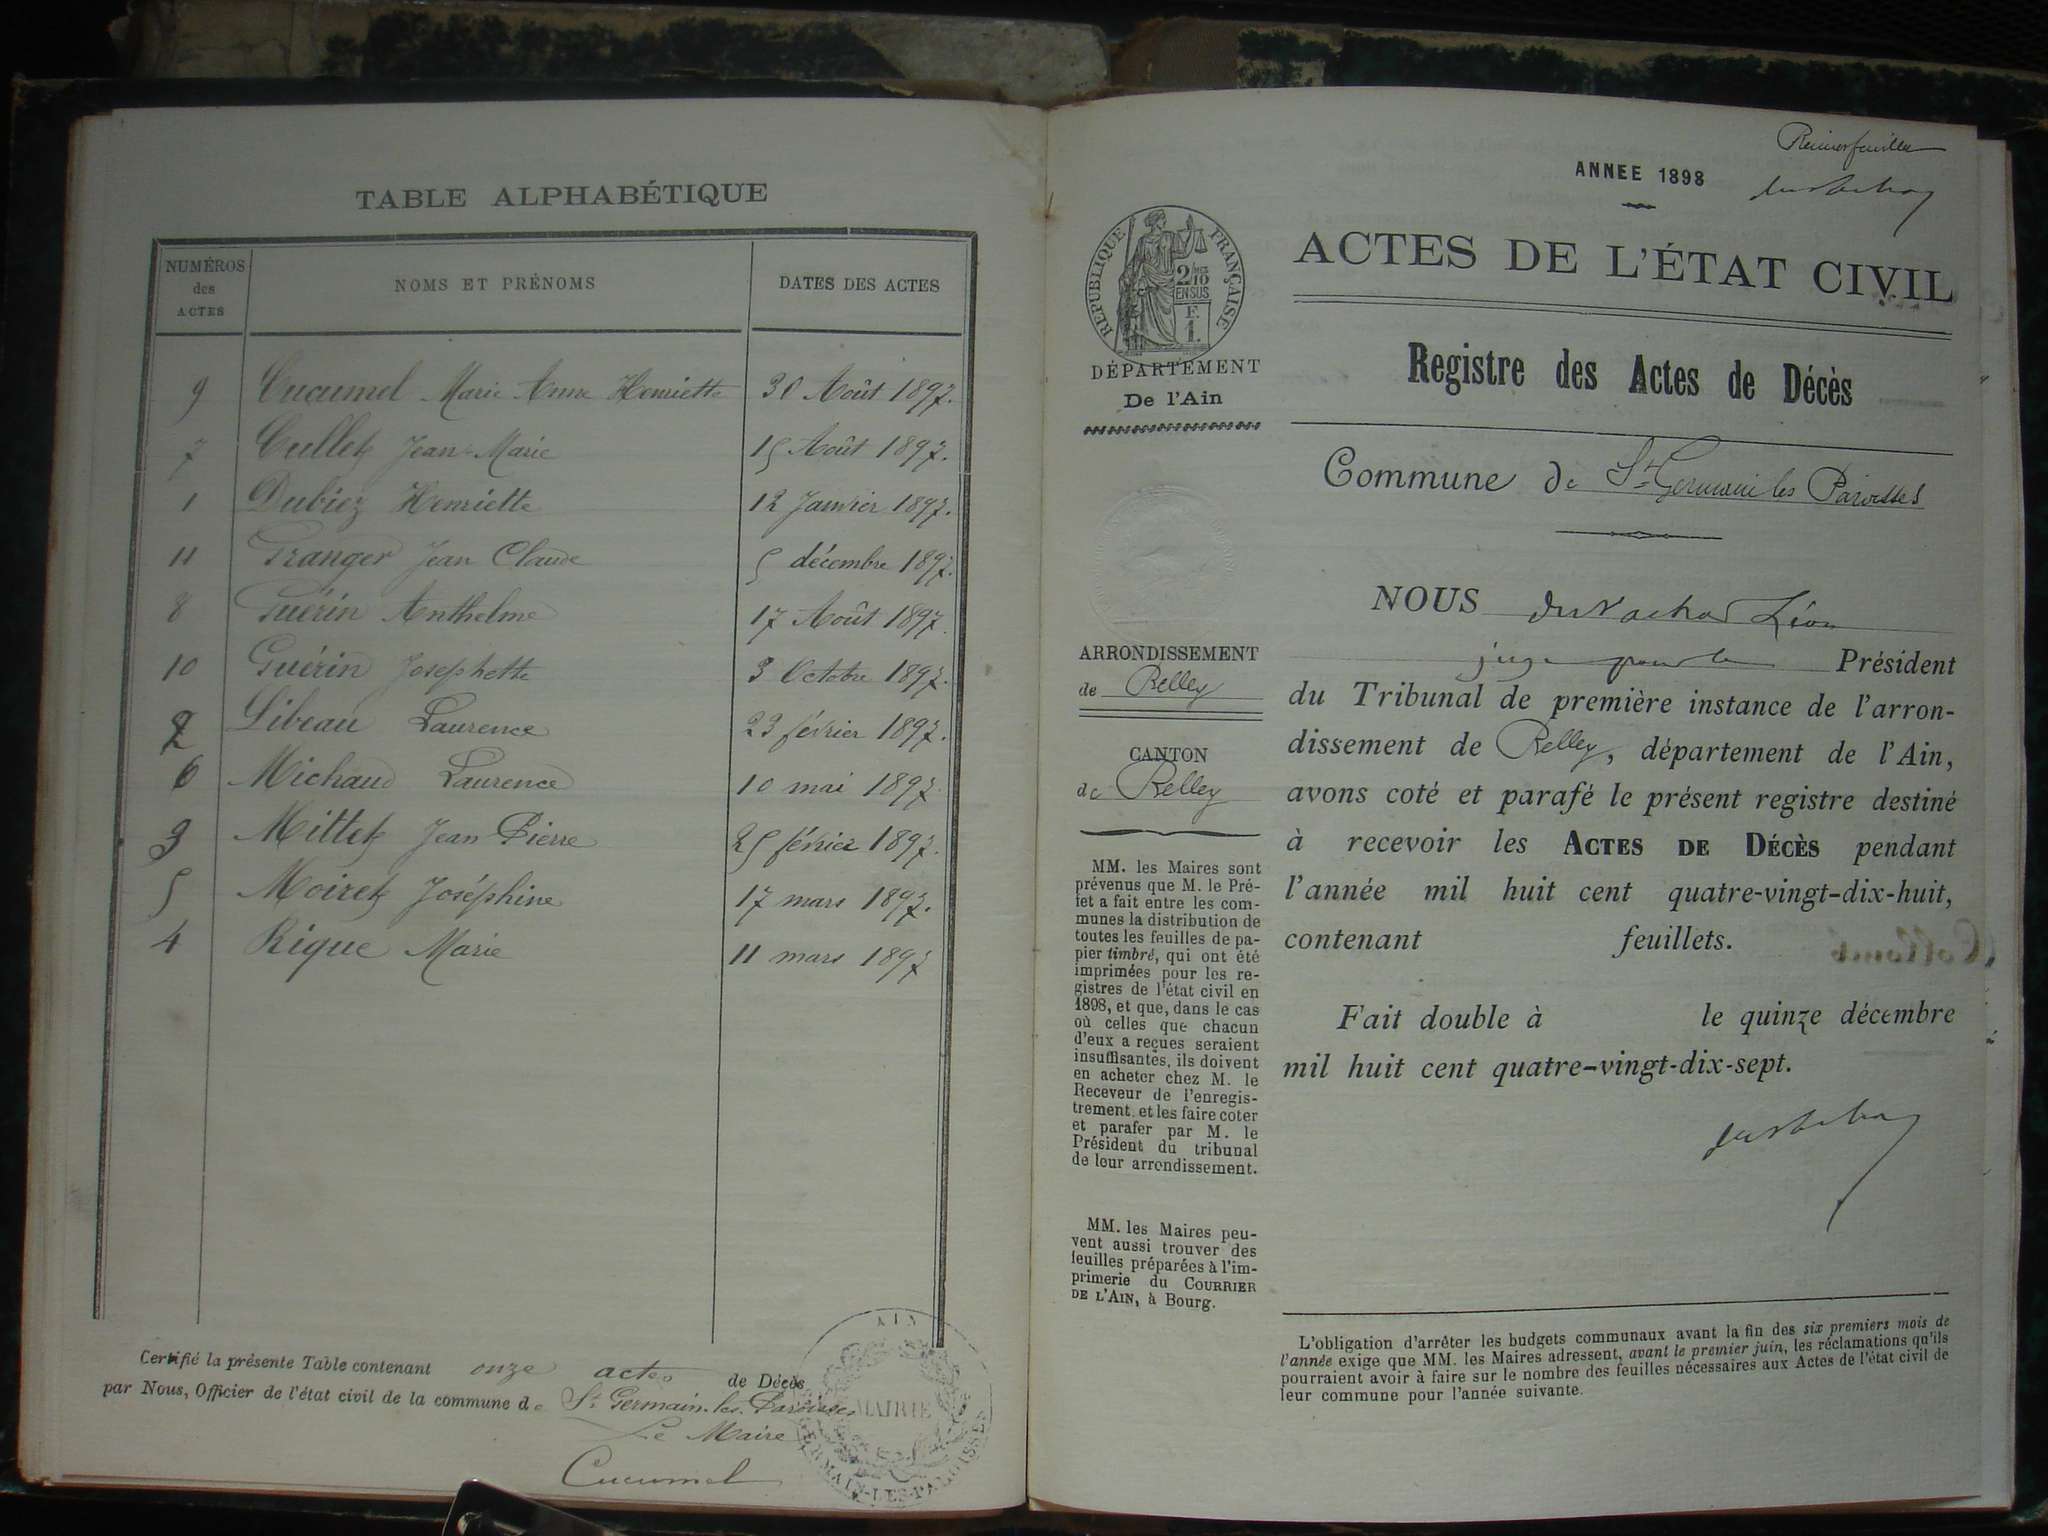 TABLE ALPHABÉTIQUE
NUMÉROS
des
ACTES
NOMS ET PRÉNOMS
DATES DES ACTES
9 Cucumel Marie Anne Henriette 30 Août 1897.
7 Cullet Jean-Marie 15 Août 1897.
1 Dubiez Henriette 12 Janvier 1897.
11 Granger Jean Claude 5 décembre 1897.
8 Guérin Anthelme 17 Août 1897.
10 Guérin Josephette 3 Octobre 1897.
2 Libeau Laurence 23 février 1897.
6 Michaud Laurence 10 mai 1897.
3 Mittet Jean Pierre 25 février 1897.
5 Moiret Joséphine 17 mars 1897.
4 Rique Marie 11 mars 1897
Certifié la présente Table contenant onze actes de Décès
par Nous, Officier de l'état civil de la commune de St Germain-les-Paroisses
Le Maire
Cucumel
AIN
MAIRIE
GERMAIN-LES-PAROISSES
ANNEE 1898
ACTES DE L'ÉTAT CIVIL
RÉPUBLIQUE FRANÇAISE
2/10
EN SUS
F.
1.
DÉPARTEMENT
De l'Ain
Registre des Actes de Décès
Commune de St Germain les Paroisses
ARRONDISSEMENT
de Belley
CANTON
de Belley
MM. les Maires sont
prévenus que M. le Pré-
fet a fait entre les com-
munes la distribution de
toutes les feuilles de pa-
pier timbré, qui ont été
imprimées pour les re-
gistres de l'état civil en
1898, et que, dans le cas
où celles que chacun
d'eux a reçues seraient
insuffisantes, ils doivent
en acheter chez M. le
Receveur de l'enregis-
trement et les faire coter
et parafer par M. le
Président du tribunal
de leur arrondissement.
MM. les Maires peu-
vent aussi trouver des
feuilles préparées à l'im-
primerie du COURRIER
DE L'AIN, à Bourg.
NOUS Léon
juge pour le Président
du Tribunal de première instance de l'arron-
dissement de Belley, département de l'Ain,
avons coté et parafé le présent registre destiné
à recevoir les ACTES DE DÉCÈS pendant
l'année mil huit cent quatre-vingt-dix-huit,
contenant feuillets.
Fait double à le quinze décembre
mil huit cent quatre-vingt-dix-sept.
L'obligation d'arrêter les budgets communaux avant la fin des six premiers mois de
l'année exige que MM. les Maires adressent, avant le premier juin, les réclamations qu'ils
pourraient avoir à faire sur le nombre des feuilles nécessaires aux Actes de l'état civil de
leur commune pour l'année suivante.